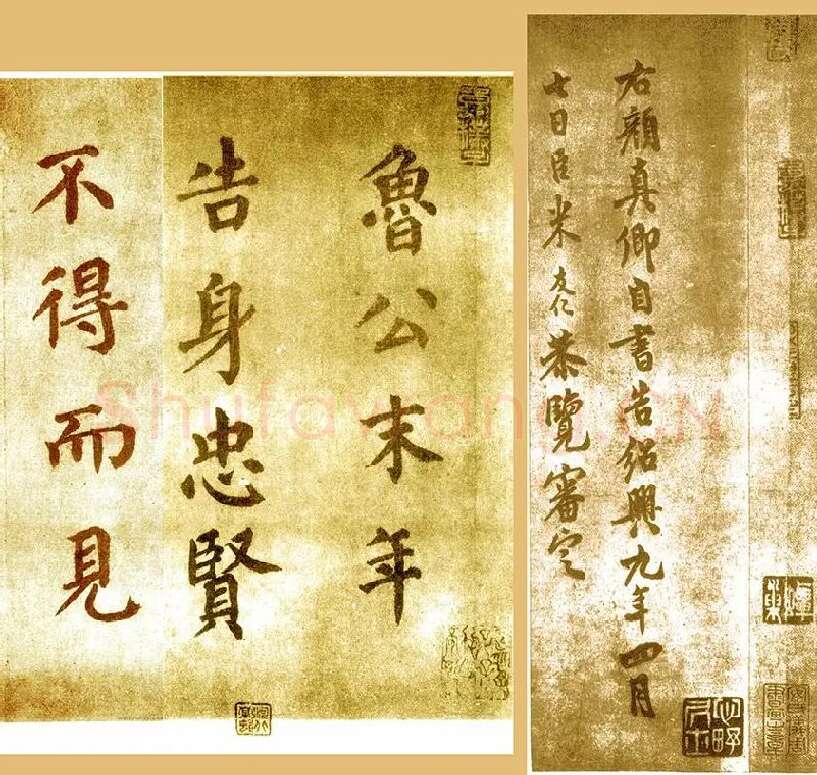 魯公末年
告身忠賢
不得而見
右顔真卿自書告紹興九年四月
七日臣米友仁恭覽審定